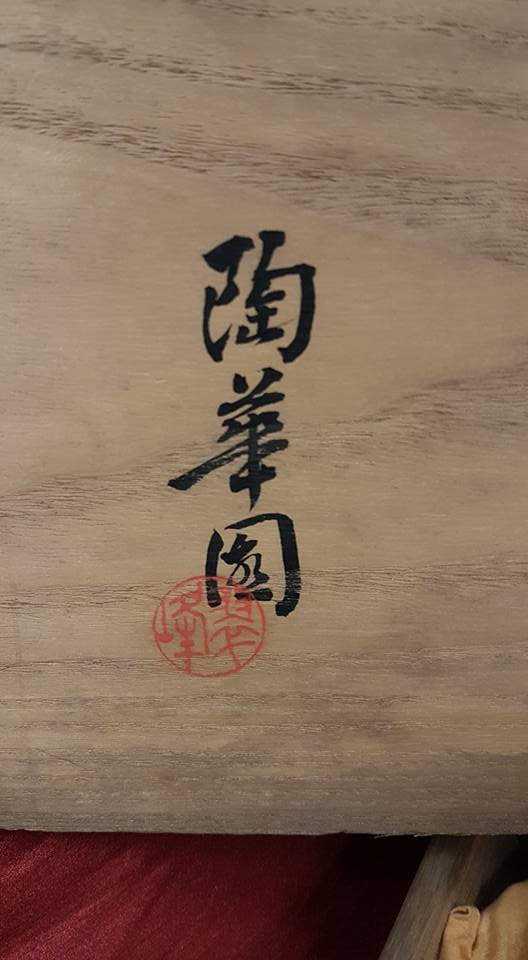 陶華園